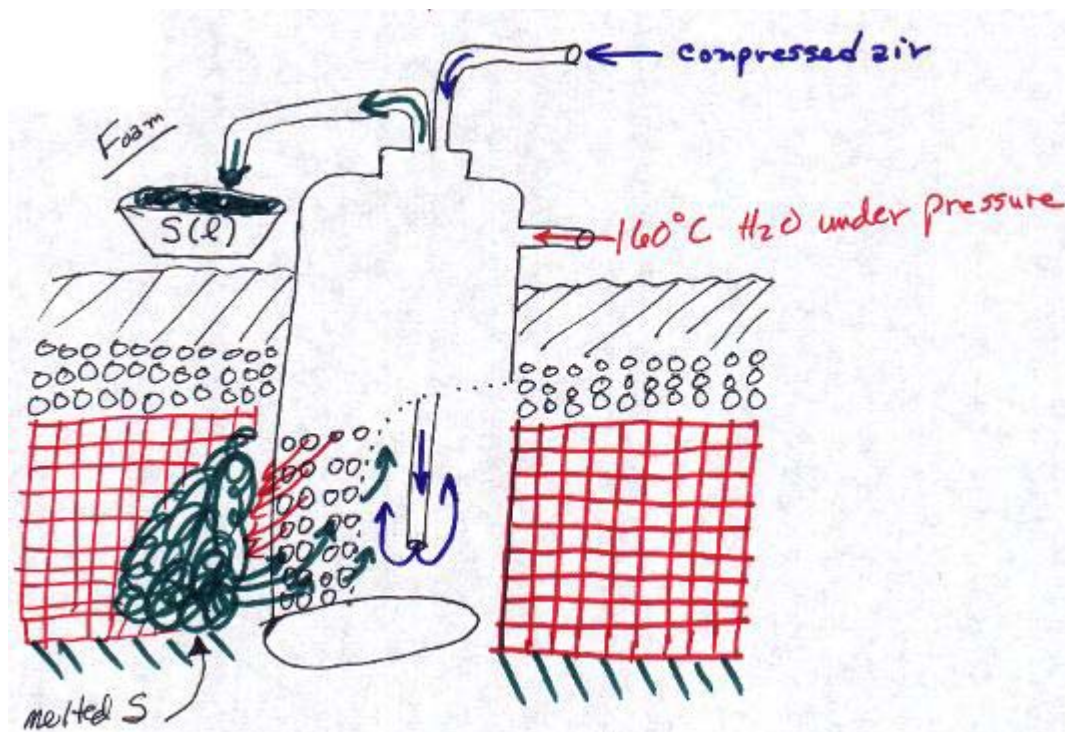 compressed air
Foam
S(l)
160°C H₂O under pressure
melted S